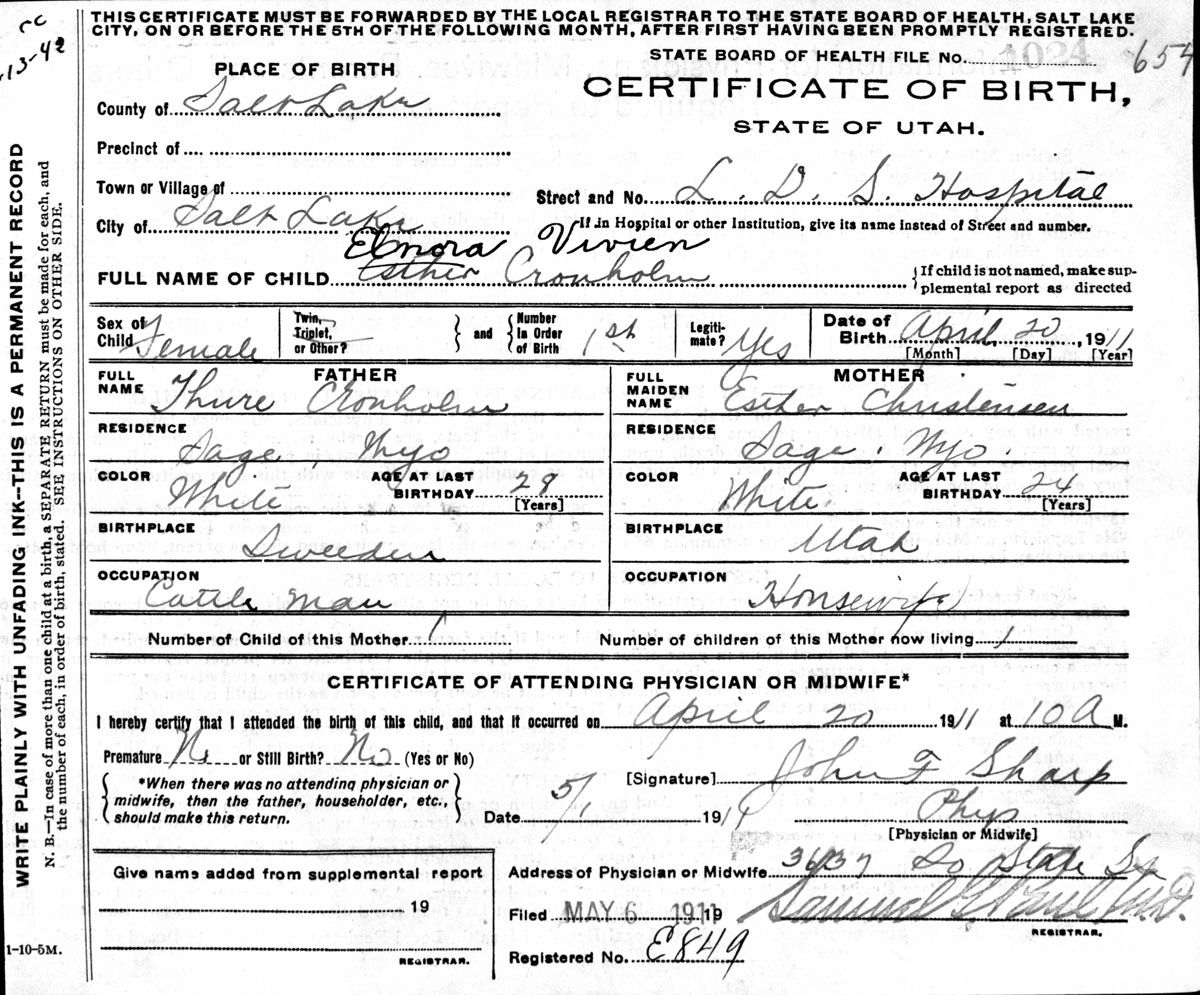 cc
13-42
THIS CERTIFICATE MUST BE FORWARDED BY THE LOCAL REGISTRAR TO THE STATE BOARD OF HEALTH, SALT LAKE
CITY, ON OR BEFORE THE 5TH OF THE FOLLOWING MONTH, AFTER FIRST HAVING BEEN PROMPTLY REGISTERED.
STATE BOARD OF HEALTH FILE No. 1084 654
PLACE OF BIRTH
CERTIFICATE OF BIRTH,
County of Salt Lake
STATE OF UTAH.
Precinct of
Town or Village of
Street and No. L. D. S. Hospital
City of Salt Lake
If in Hospital or other Institution, give its name instead of Street and number.
Elnora Vivien
FULL NAME OF CHILD Esther Cronholm
If child is not named, make sup-
plemental report as directed
Sex of Child Female
Twin, Triplet, or Other?
and
Number In Order of Birth 1st
Legiti- mate? Yes
Date of Birth April 20, 1911
[Month] [Day] [Year]
FATHER
FULL NAME Thure Cronholm
MOTHER
FULL MAIDEN NAME Esther Christensen
RESIDENCE Sage, Wyo
RESIDENCE Sage, Wyo
COLOR White AGE AT LAST BIRTHDAY 28 [Years]
COLOR White AGE AT LAST BIRTHDAY 24 [Years]
BIRTHPLACE Sweeden
BIRTHPLACE Utah
OCCUPATION Cattle man
OCCUPATION Housewife
Number of Child of this Mother 1
Number of children of this Mother now living 1
CERTIFICATE OF ATTENDING PHYSICIAN OR MIDWIFE*
I hereby certify that I attended the birth of this child, and that it occurred on April 20 1911 at 10 A M.
Premature No or Still Birth? No (Yes or No)
*When there was no attending physician or
midwife, then the father, householder, etc.,
should make this return.
[Signature] John F Sharp
Date 5/1 1911
Phys
[Physician or Midwife]
Give name added from supplemental report
19
REGISTRAR.
Address of Physician or Midwife 3637 So State St
Filed MAY 6 1911 19 Samuel G. Paul M.D.
REGISTRAR.
Registered No. E849
WRITE PLAINLY WITH UNFADING INK--THIS IS A PERMANENT RECORD
N. B.--In case of more than one child at a birth, a SEPARATE RETURN must be made for each, and
the number of each, in order of birth, stated. SEE INSTRUCTIONS ON OTHER SIDE.
1-10-5M.